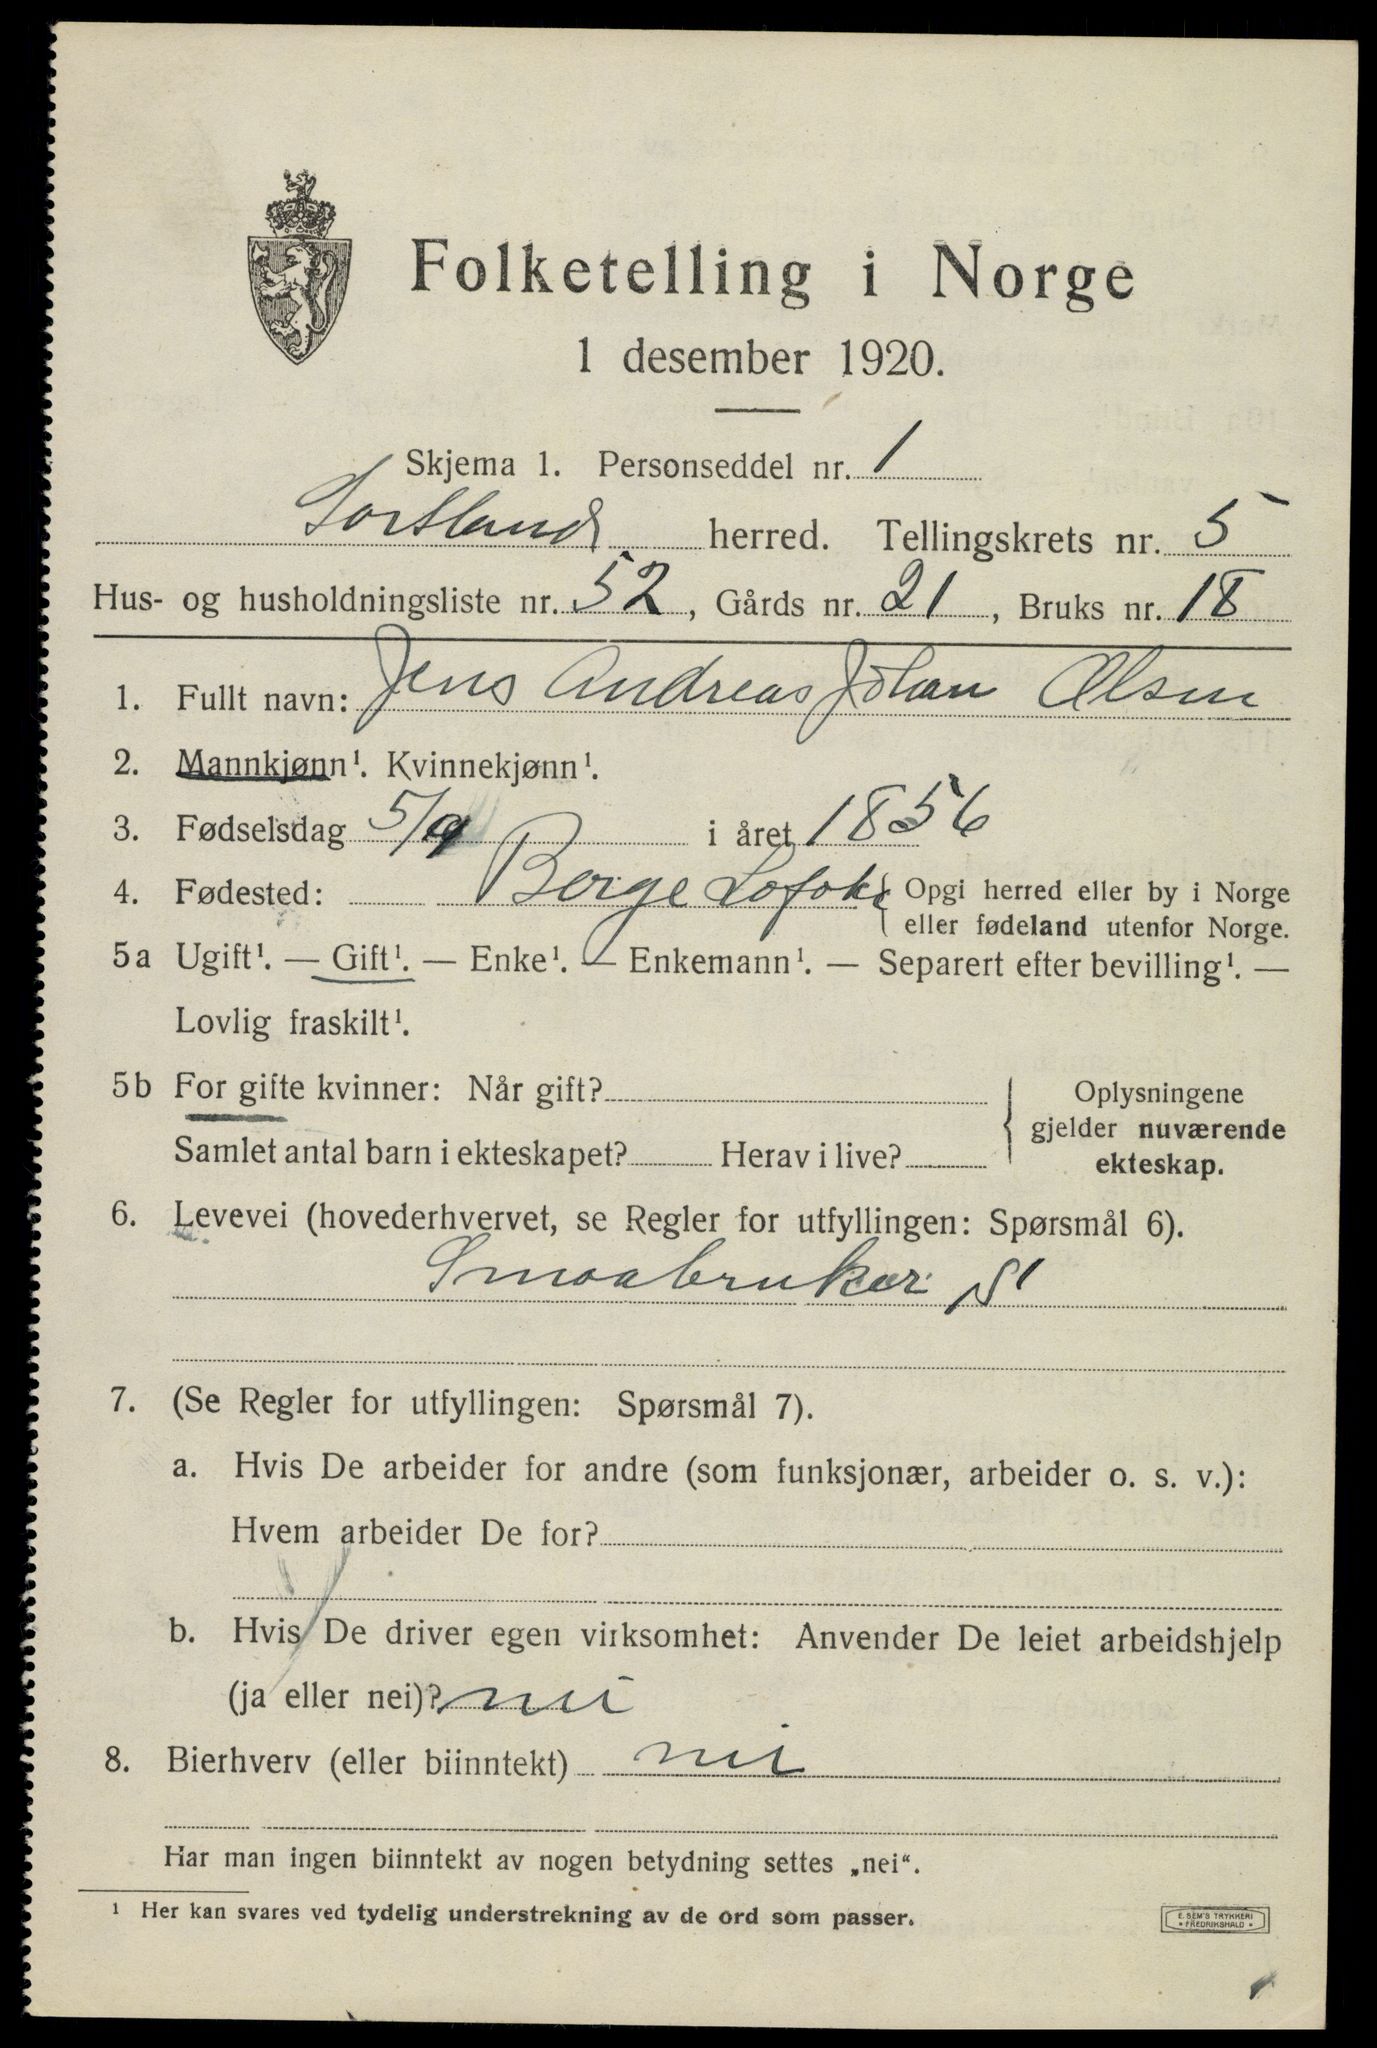 Folketelling i Norge
1 desember 1920.
Skjema 1. Personseddel nr. 1
Sortland herred. Tellingskrets nr. 5
Hus- og husholdningsliste nr. 52, Gårds nr. 21, Bruks nr. 18
1. Fullt navn: Jens Andreas Johan Olsen
2. Mannkjønn¹. Kvinnekjønn¹.
3. Fødselsdag 5/9 i året 1856
4. Fødested: Borge Lofoten { Opgi herred eller by i Norge
eller fødeland utenfor Norge.
5a Ugift¹. — Gift¹. — Enke¹. — Enkemann¹. — Separert efter bevilling¹. —
Lovlig fraskilt¹.
5b For gifte kvinner: Når gift?
Samlet antal barn i ekteskapet? Herav i live?
} Oplysningene
gjelder nuværende
ekteskap.
6. Levevei (hovederhvervet, se Regler for utfyllingen: Spørsmål 6).
Smaabruker S¹
7. (Se Regler for utfyllingen: Spørsmål 7).
a. Hvis De arbeider for andre (som funksjonær, arbeider o. s. v.):
Hvem arbeider De for?
b. Hvis De driver egen virksomhet: Anvender De leiet arbeidshjelp
(ja eller nei)? nei
8. Bierhverv (eller biinntekt) nei
Har man ingen biinntekt av nogen betydning settes „nei“.
¹ Her kan svares ved tydelig understrekning av de ord som passer.
E. SEM'S TRYKKERI
• FREDRIKSHALD •